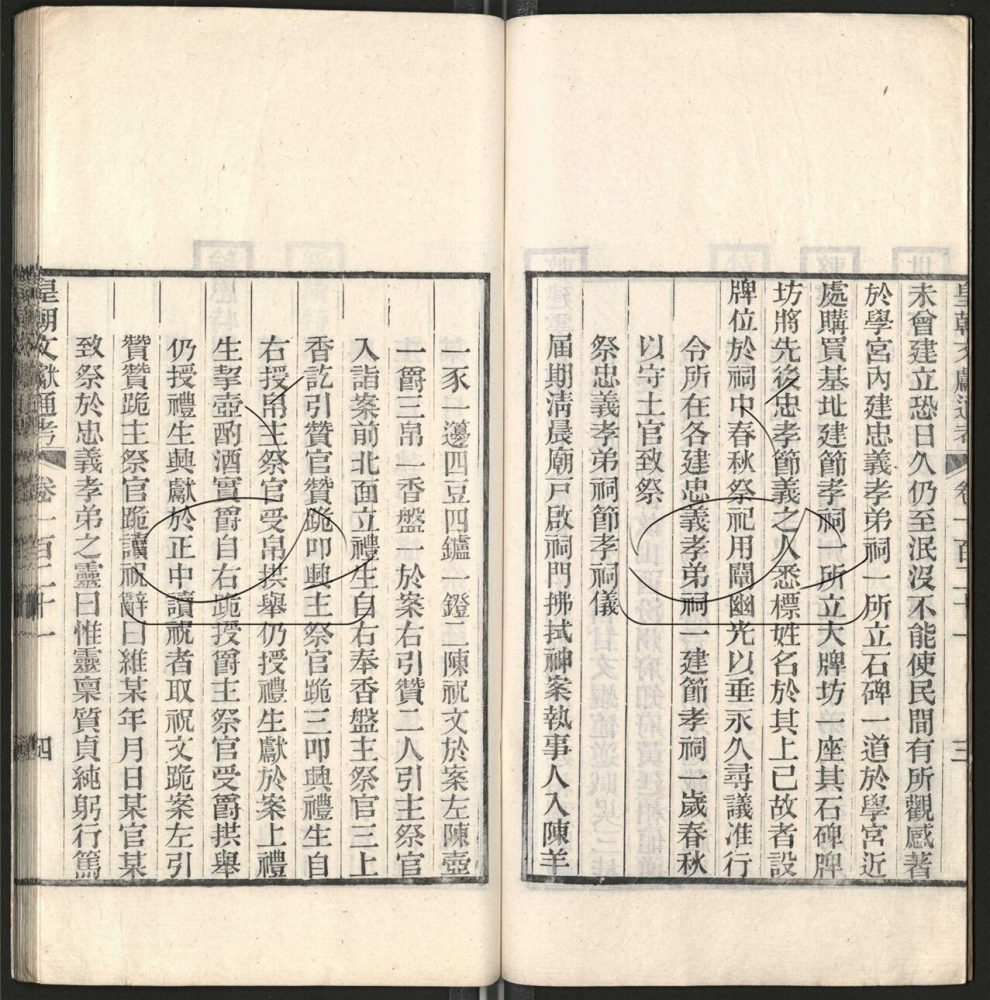 皇朝文獻通考 卷一百二十一 三
未曾建立恐日久仍至泯沒不能使民間有所觀感著
於學宮內建忠義孝弟祠一所立石碑一道於學宮近
處購買基址建節孝祠一所立大牌坊一座其石碑牌
坊將先後忠孝節義之人悉標姓名於其上已故者設
牌位於祠中春秋祭祀用闡幽光以垂永久尋議准行
令所在各建忠義孝弟祠一建節孝祠一歲春秋
以守土官致祭
祭忠義孝弟祠節孝祠儀
屆期淸晨廟戸啟祠門拂拭神案執事人入陳羊
一豕一籩四豆四鑪一鐙二陳祝文於案左陳壺
一爵三帛一香盤一於案右引贊二人引主祭官
入詣案前北面立禮生自右奉香盤主祭官三上
香訖引贊官贊跪叩興主祭官跪三叩興禮生自
右授帛主祭官受帛拱舉仍授禮生獻於案上禮
生挈壺酌酒實爵自右跪授爵主祭官受爵拱舉
仍授禮生興獻於正中讀祝者取祝文跪案左引
贊贊跪主祭官跪讀祝辭曰維某年月日某官某
致祭於忠義孝弟之靈曰惟靈稟質貞純躬行篤
皇朝文獻通考 卷一百二十一 四